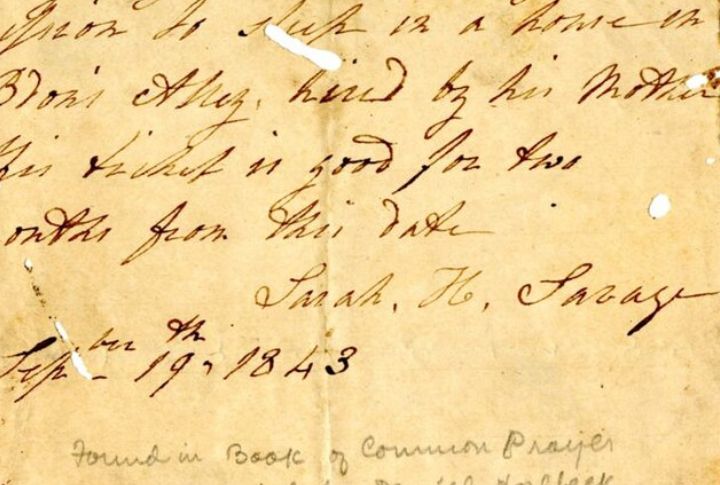 to sleep in a house in
Alley, hired by his Mother
his ticket is good for two
onths from this date
Sarah. H. Savage
Sepber 19th 1843
Found in Book of Common Prayer